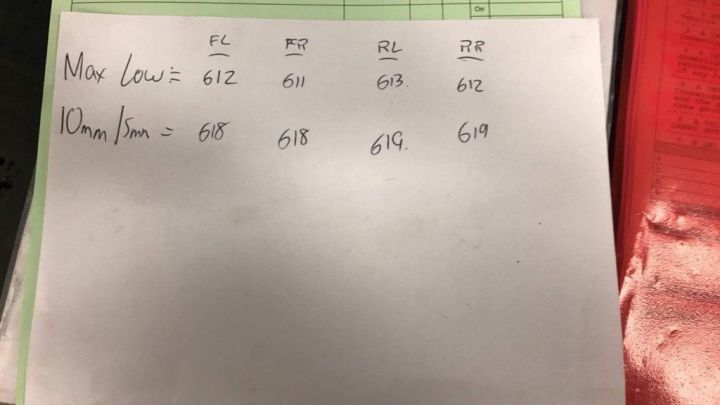 On
FL FR RL RR
Max Low = 612 611 613. 612
10mm/5mm = 618 618 619. 619